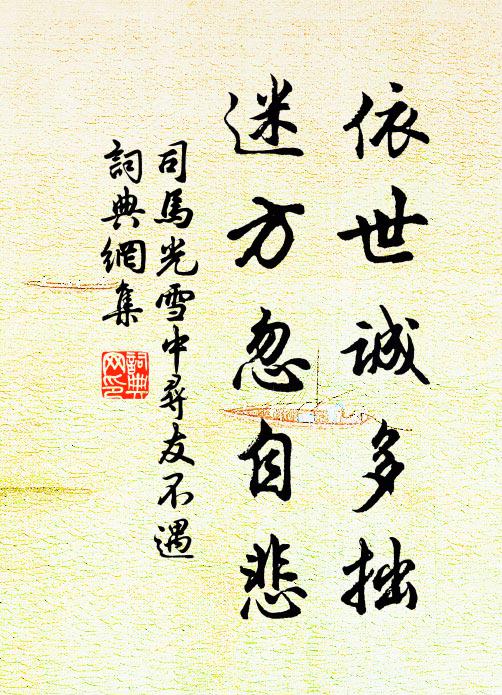 依世誠多拙
迷方忽自悲
司馬光雪中尋友不遇
詞典網集
詞典
网印